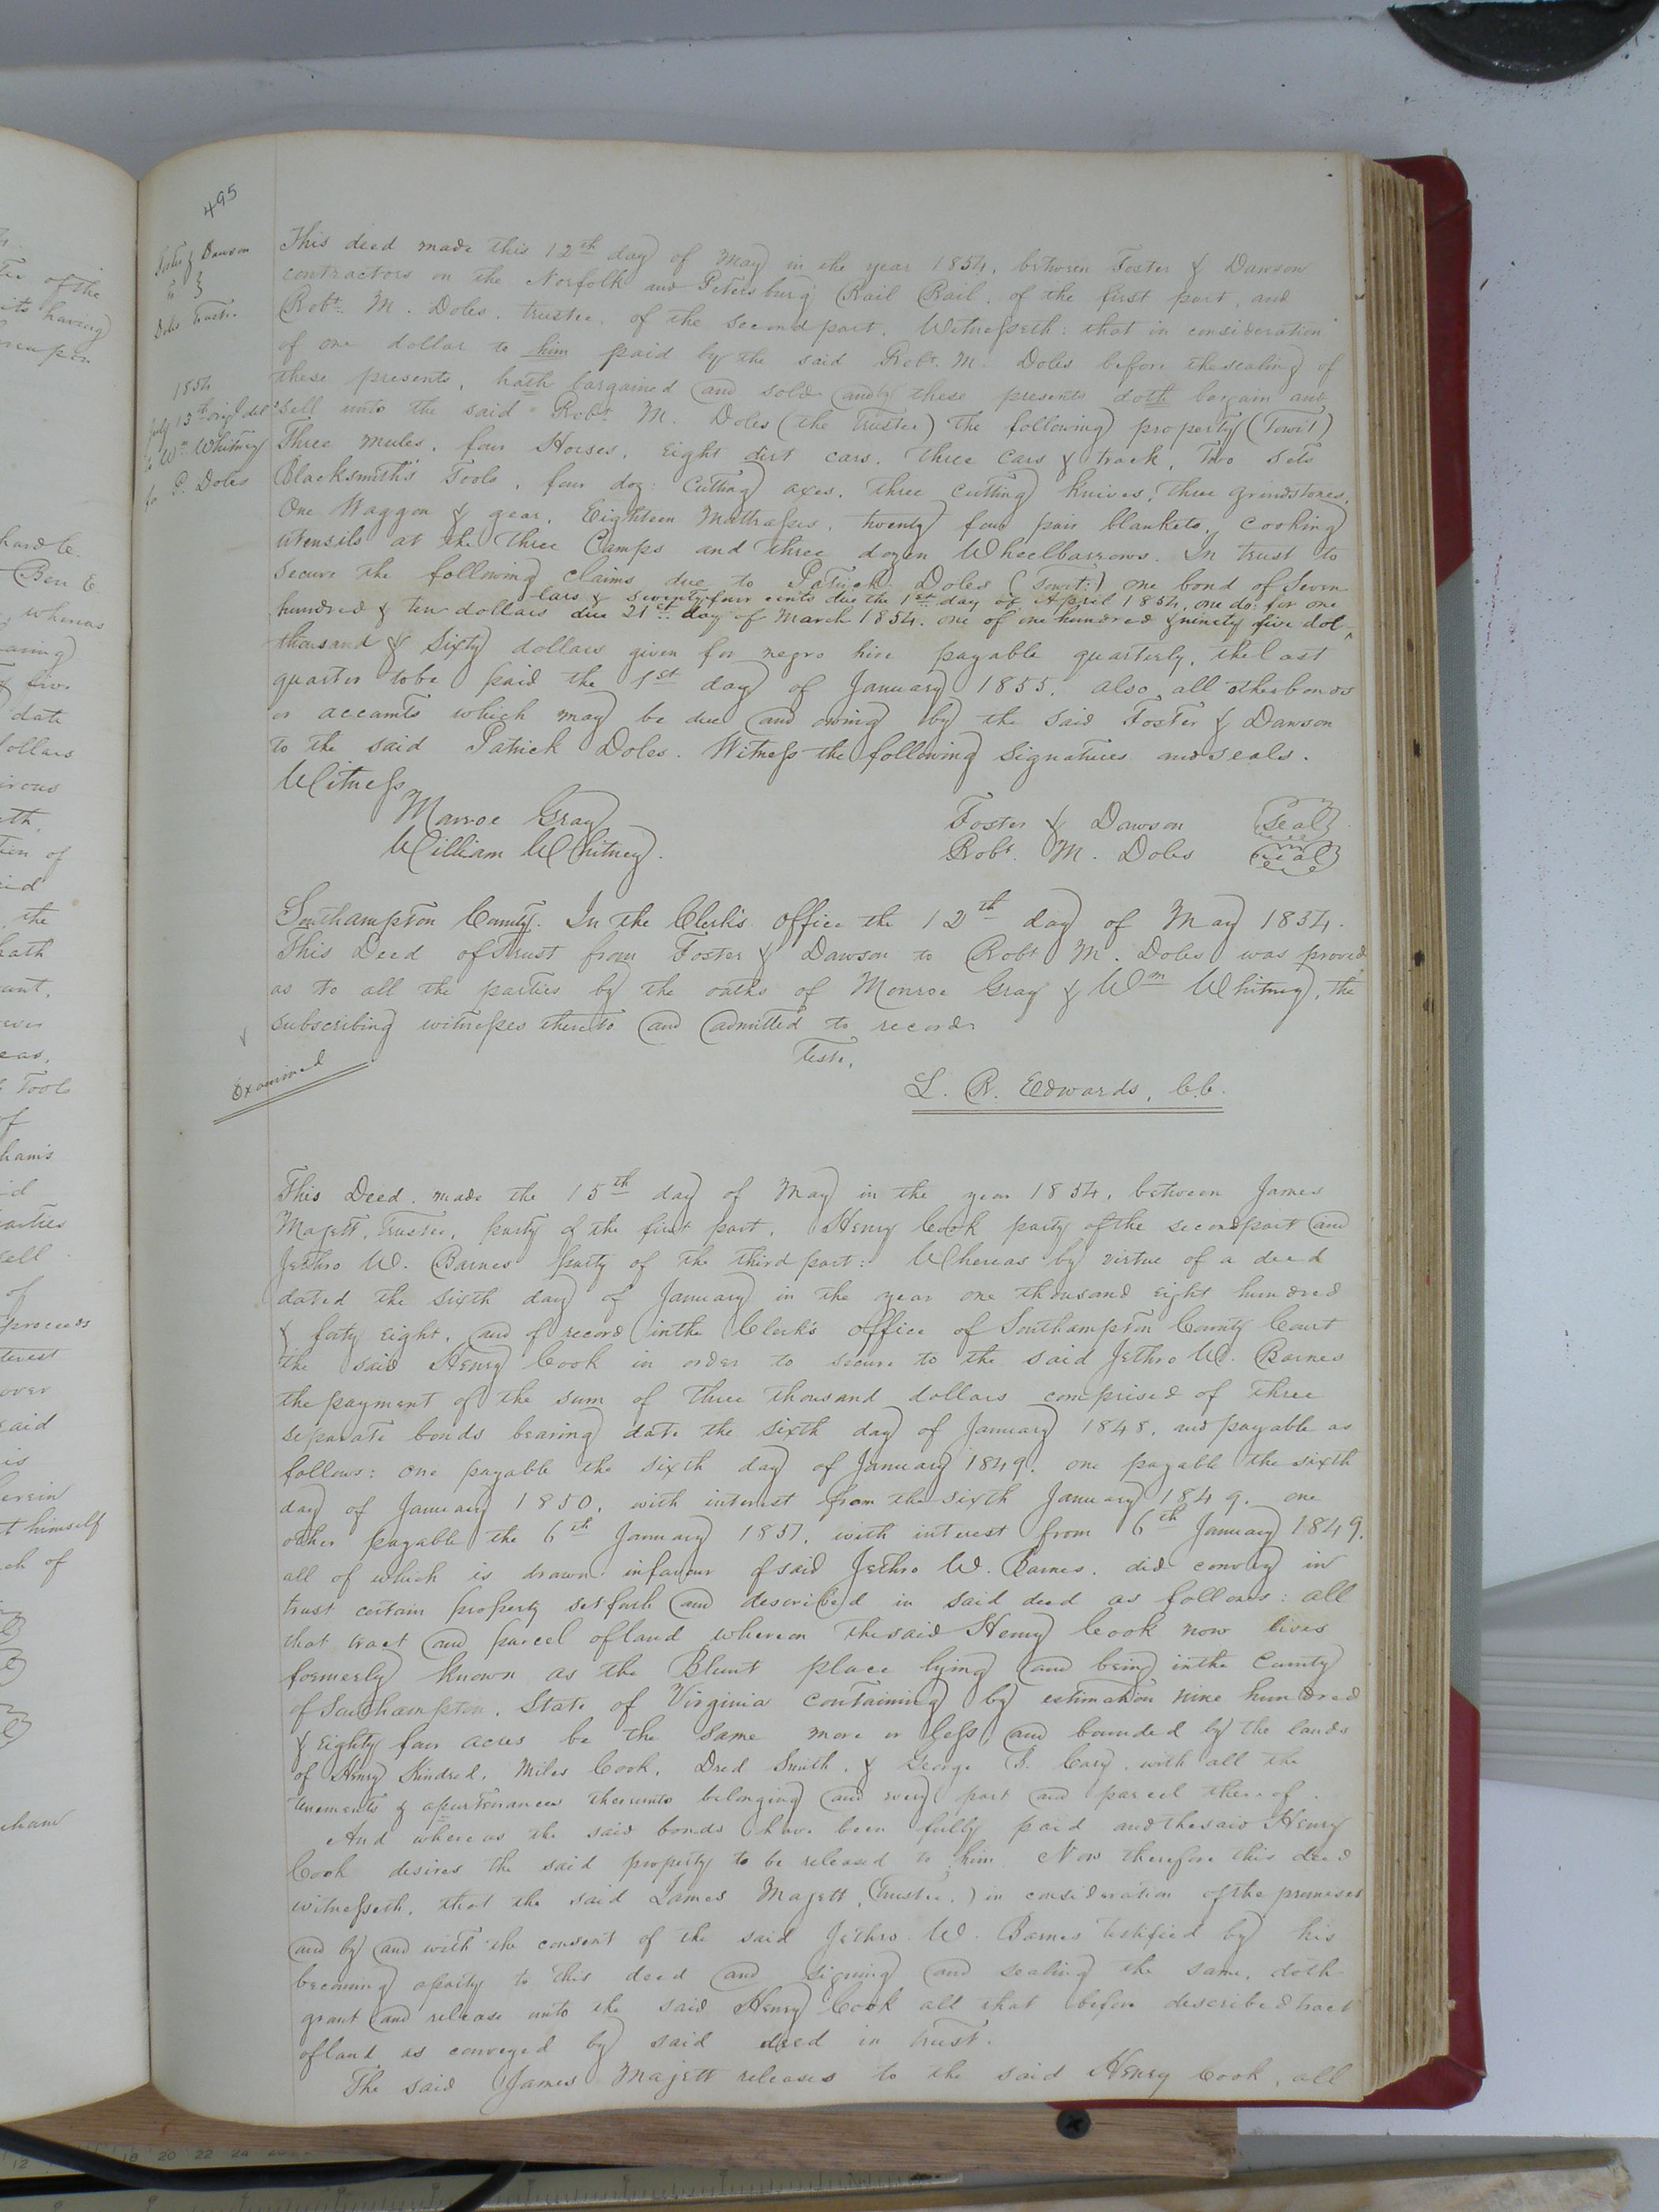 495
Foster & Dawson
to }
Doles Trustee
1854
July 13th origl deld
to Wm Whitney
for P. Doles
This deed made this 12th day of May in the year 1854, between Foster & Dawson
contractors on the Norfolk and Petersburg Rail Rail, of the first part, and
Robt. M. Doles, trustee, of the second part, Witnesseth: that in consideration
of one dollar to him paid by the said Robt. M. Doles before the sealing of
these presents, hath bargained and sold and by these presents doth bargain and
sell unto the said Robt. M. Doles (the Trustee) the following property (Towit)
Three mules, four Horses, Eight dirt cars, three cars & track, Two sets
Blacksmith's Tools, four doz: Cutting axes, three cutting knives, three grindstones,
One Waggon & gear, Eighteen Mattrasses, twenty four pair blankets, cooking
utensils at the three Camps and three dozen Wheelbarrows. In trust to
secure the following claims due to Patrick Doles (Towit:) one bond of Seven
-lars & seventy four cents due the 1st day of April 1854, one do: for one
hundred & ten dollars due 21st day of March 1854. one of one hundred & ninety five dol-
thousand & Sixty dollars given for negro hire payable quarterly, the last
quarter to be paid the 1st day of January 1855. also all other bonds
or accounts which may be due and owing by the said Foster & Dawson
to the said Patrick Doles. Witness the following signatures and seals.
Witness
Monroe Gray
Foster & Dawson Seal
William Whitney.
Robt. M. Doles Seal
Southampton County. In the Clerk's Office the 12th day of May 1854.
This Deed of Trust from Foster & Dawson to Robt M. Doles was proved
as to all the parties by the oaths of Monroe Gray & Wm Whitney, the
subscribing witnesses thereto and admitted to record.
Teste,
Examined
L. R. Edwards, C.C.
This Deed made the 15th day of May in the year 1854, between James
Majett, Trustee, party of the first part, Henry Cook party of the second part and
Jethro W. Barnes party of the third part: Whereas by virtue of a deed
dated the sixth day of January in the year one thousand eight hundred
& forty eight, and of record in the Clerk's office of Southampton County Court
the said Henry Cook in order to secure to the said Jethro W. Barnes
the payment of the sum of three thousand dollars comprised of three
separate bonds bearing date the sixth day of January 1848, and payable as
follows: one payable the sixth day of January 1849. one payable the sixth
day of January 1850, with interest from the sixth January 1849. one
other payable the 6th January 1851, with interest from 6th January 1849.
all of which is drawn in favour of said Jethro W. Barnes, did convey in
trust certain property set forth and described in said deed as follows: all
that tract and parcel of land whereon the said Henry Cook now lives
formerly known as the Blunt place lying and being in the County
of Southampton, State of Virginia containing by estimation nine hundred
& Eighty four acres be the same more or less and bounded by the lands
of Henry Kindred, Miles Cook, Dred Smith, & George B. Cary, with all the
tenements & apurtenances thereunto belonging and every part and parcel thereof.
And whereas the said bonds have been fully paid and the said Henry
Cook desires the said property to be released to him Now therefore this deed
witnesseth, that the said James Majett, (Trustee,) in consideration of the premises
and by and with the consent of the said Jethro W. Barnes testified by his
becoming a party to this deed and signing and sealing the same, doth
grant and release unto the said Henry Cook all that before described tract
of land as conveyed by said deed in trust.
The said James Majett releases to the said Henry Cook, all